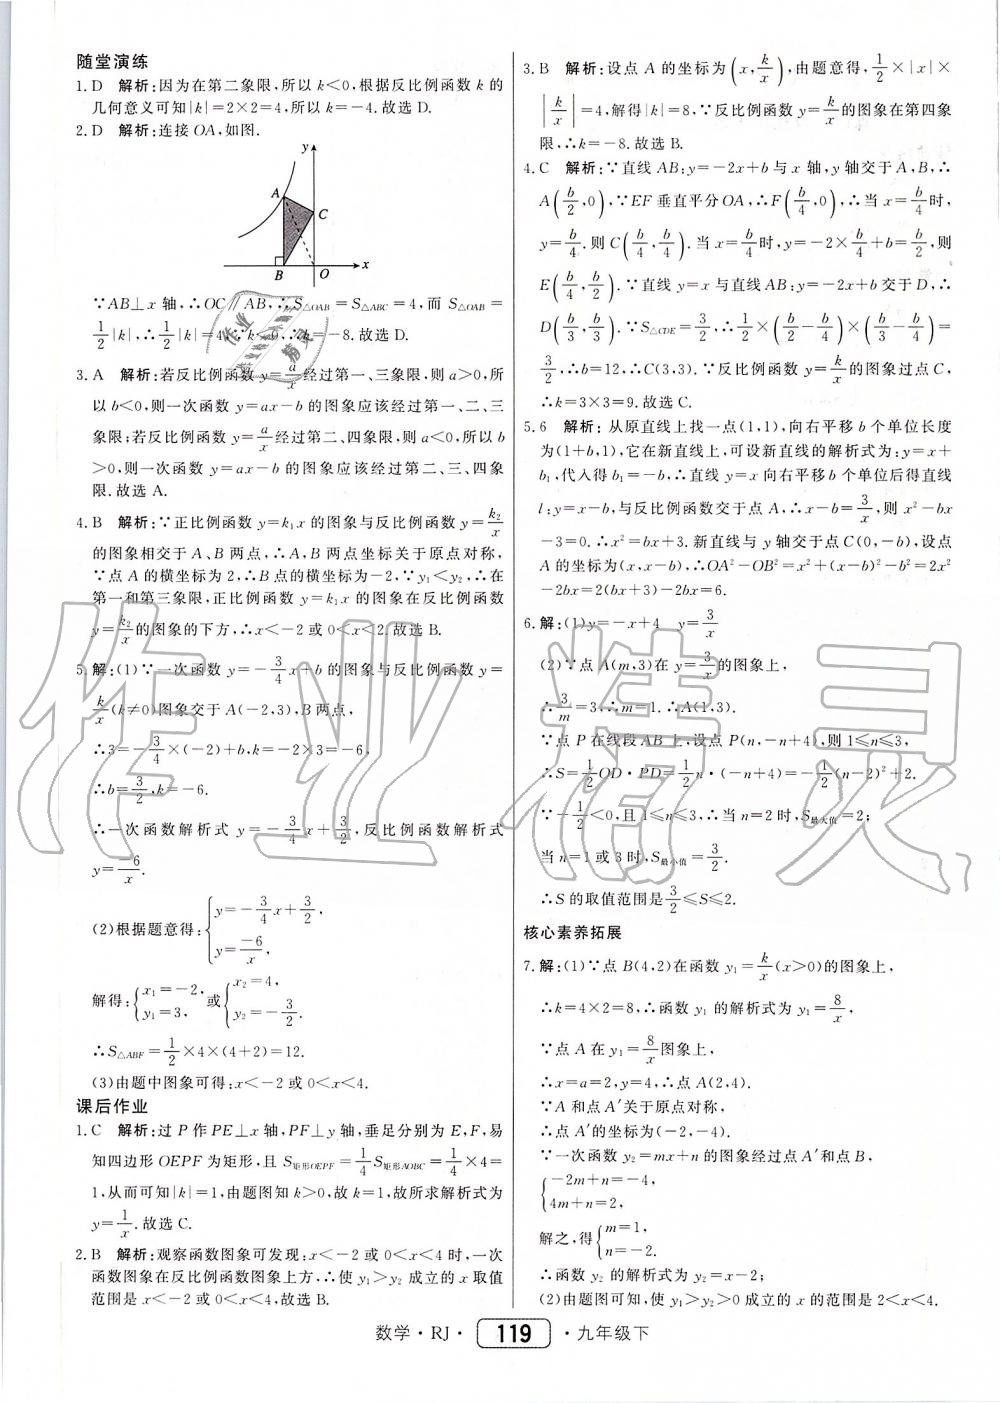 随堂演练
1. D　解析:因为在第二象限,所以 k<0,根据反比例函数 k 的
几何意义可知|k|=2×2=4,所以 k=-4.故选 D.
2. D　解析:连接 OA,如图.
y
A
C
B
O
x
∵AB⊥x 轴,∴OC∥AB,∴S△OAB=S△ABC=4,而 S△OAB=
1/2|k|,∴1/2|k|=4,∵k<0,∴k=-8.故选 D.
3. A　解析:若反比例函数 y=a/x 经过第一、三象限,则 a>0,所
以 b<0,则一次函数 y=ax-b 的图象应该经过第一、二、三
象限;若反比例函数 y=a/x 经过第二、四象限,则 a<0,所以 b
>0,则一次函数 y=ax-b 的图象应该经过第二、三、四象
限.故选 A.
4. B　解析:∵正比例函数 y=k₁x 的图象与反比例函数 y=k₂/x
的图象相交于 A、B 两点,∴A、B 两点坐标关于原点对称,
∵点 A 的横坐标为 2,∴B 点的横坐标为-2,∵y₁<y₂,∴在
第一和第三象限,正比例函数 y=k₁x 的图象在反比例函数
y=k₂/x 的图象的下方,∴x<-2 或 0<x<2.故选 B.
5. 解:(1)∵一次函数 y=-3/4x+b 的图象与反比例函数 y=
k/x(k≠0)图象交于 A(-2,3),B 两点,
∴3=-3/4×(-2)+b,k=-2×3=-6,
∴b=3/2,k=-6.
∴一次函数解析式 y=-3/4x+3/2,反比例函数解析式
y=-6/x.
(2)根据题意得:{y=-3/4x+3/2, y=-6/x,
解得:{x₁=-2, y₁=3, 或{x₂=4, y₂=-3/2.
∴S△ABF=1/2×4×(4+2)=12.
(3)由题中图象可得:x<-2 或 0<x<4.
课后作业
1. C　解析:过 P 作 PE⊥x 轴,PF⊥y 轴,垂足分别为 E,F,易
知四边形 OEPF 为矩形,且 S矩形OEPF=1/4S矩形AOBC=1/4×4=
1,从而可知|k|=1,由题图知 k>0,故 k=1,故所求解析式为
y=1/x.故选 C.
2. B　解析:观察函数图象可发现:x<-2 或 0<x<4 时,一次
函数图象在反比例函数图象上方,∴使 y₁>y₂ 成立的 x 取值
范围是 x<-2 或 0<x<4,故选 B.
3. B　解析:设点 A 的坐标为(x,k/x),由题意得,1/2×|x|×
|k/x|=4,解得|k|=8,∵反比例函数 y=k/x 的图象在第四象
限,∴k=-8.故选 B.
4. C　解析:∵直线 AB:y=-2x+b 与 x 轴,y 轴交于 A,B,∴
A(b/2,0),∵EF 垂直平分 OA,∴F(b/4,0),∴当 x=b/4 时,
y=b/4.则 C(b/4,b/4).当 x=b/4 时,y=-2×b/4+b=b/2,则
E(b/4,b/2).∵直线 y=x 与直线 AB:y=-2x+b 交于 D,∴
D(b/3,b/3).∵S△CDE=3/2,∴1/2×(b/2-b/4)×(b/3-b/4)=
3/2,∴b=12,∴C(3,3).∵反比例函数 y=k/x 的图象过点 C,
∴k=3×3=9.故选 C.
5. 6　解析:从原直线上找一点(1,1),向右平移 b 个单位长度
为(1+b,1),它在新直线上,可设新直线的解析式为:y=x+
b₁,代入得 b₁=-b,∴直线 y=x 向右平移 b 个单位后得直线
l:y=x-b,与反比例函数交于点 A,∴x-b=3/x,则 x²-bx
-3=0.∴x²=bx+3.新直线与 y 轴交于点 C(0,-b),设点
A 的坐标为(x,x-b),∴OA²-OB²=x²+(x-b)²-b²=2x²
-2bx=2(bx+3)-2bx=6.
6. 解:(1)y=-x+4　y=3/x
(2)∵点 A(m,3)在 y=3/x 的图象上,
∴3/m=3,∴m=1.∴A(1,3).
∵点 P 在线段 AB 上,设点 P(n,-n+4),则 1≤n≤3,
∴S=1/2OD·PD=1/2n·(-n+4)=-1/2(n-2)²+2.
∵-1/2<0,且 1≤n≤3,∴当 n=2 时,S最大值=2;
当 n=1 或 3 时,S最小值=3/2.
∴S 的取值范围是3/2≤S≤2.
核心素养拓展
7. 解:(1)∵点 B(4,2)在函数 y₁=k/x(x>0)的图象上,
∴k=4×2=8,∴函数 y₁ 的解析式为 y₁=8/x,
∵点 A 在 y₁=8/x 图象上,
∴x=a=2,y=4,∴点 A(2,4).
∵A 和点 A′关于原点对称,
∴点 A′的坐标为(-2,-4).
∵一次函数 y₂=mx+n 的图象经过点 A′和点 B,
{-2m+n=-4, 4m+n=2,
解之,得{m=1, n=-2,
∴函数 y₂ 的解析式为 y₂=x-2;
(2)由题图可知,使 y₁>y₂>0 成立的 x 的范围是 2<x<4.
数学·RJ· 119 ·九年级下
作业精灵